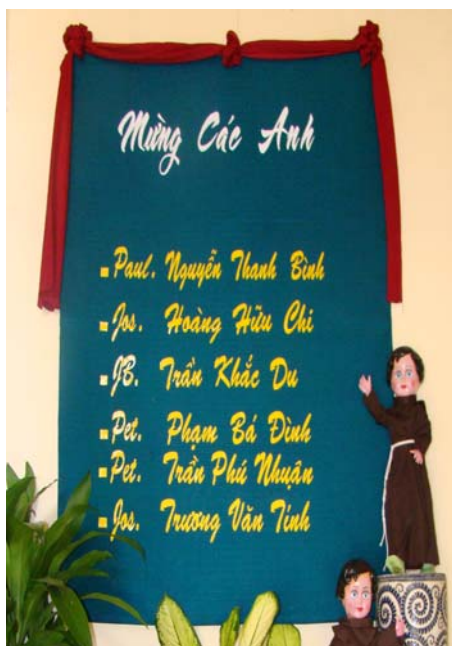 Mừng Các Anh
Paul. Nguyễn Thanh Bình
Jos. Hoàng Hữu Chi
JB. Trần Khắc Du
Pet. Phạm Bá Đình
Pet. Trần Phú Nhuận
Jos. Trương Văn Tính